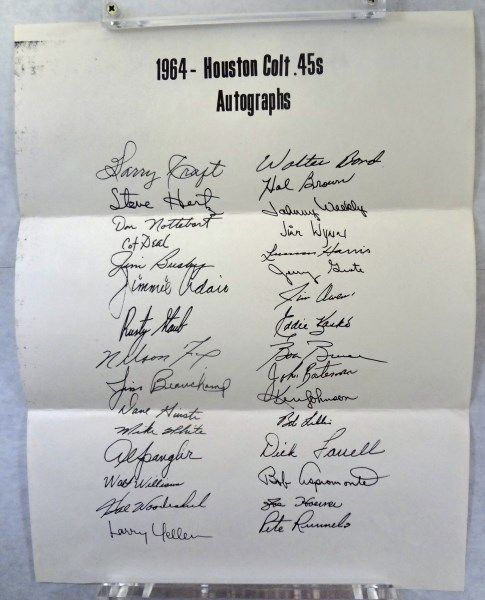 1964 - Houston Colt .45s
Autographs
Harry Craft
Steve Hertz
Don Nottebart
Cot Deal
Jim Busby
Jimmie Adair
Rusty Staub
Nelson Fox
Jim Beauchamp
Dave Giusti
Mike White
Al Spangler
Walt Williams
Hal Woodeshick
Larry Yellen
Walter Bond
Hal Brown
Johnny Weekly
Jim Wynn
Luman Harris
Jerry Grote
Jim Owens
Eddie Kasko
Bob Bruce
John Bateman
Ken Johnson
Bob Lillis
Dick Farrell
Bob Aspromonte
Joe Hoerner
Pete Runnels